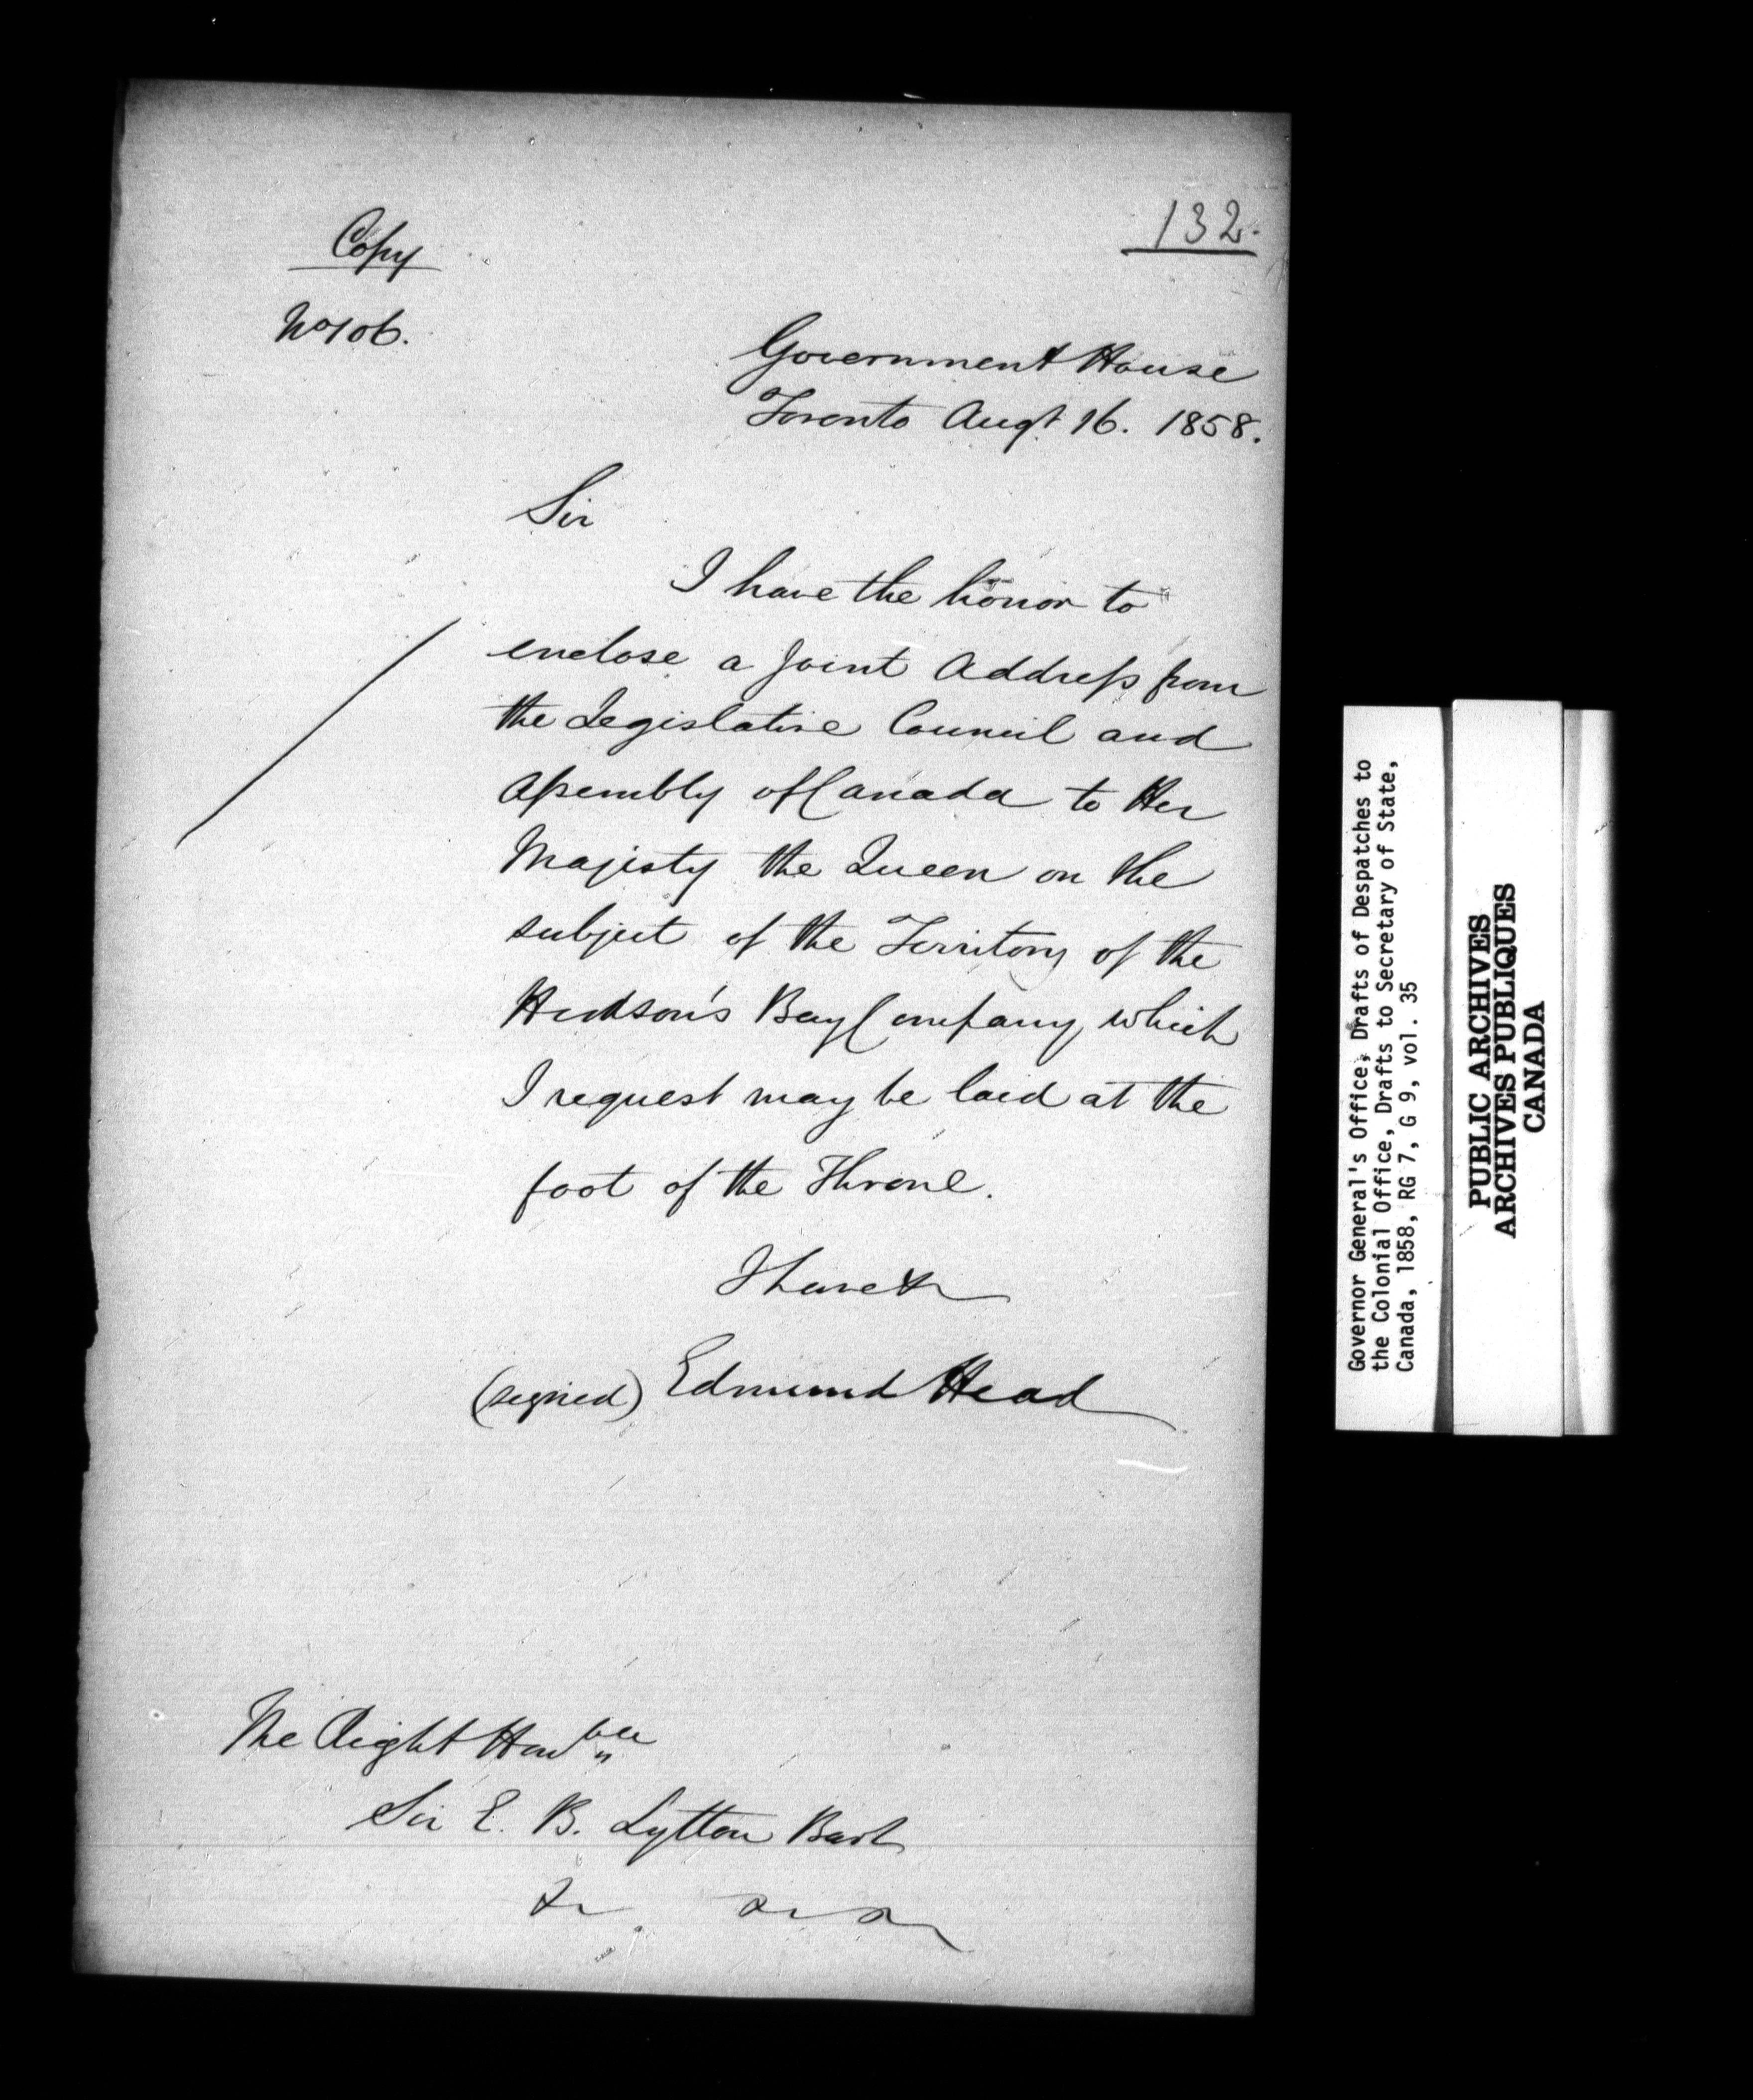 132.
Copy
No 106.
Government House
Toronto Augt 16. 1858.
Sir
I have the honor to
enclose a Joint Address from
the Legislative Council and
Assembly of Canada to Her
Majesty the Queen on the
subject of the Territory of the
Hudson's Bay Company, which
I request may be laid at the
foot of the Throne.
I have &c
(signed) Edmund Head
The Right Honble
Sir E. B. Lytton Bart
&c &c &c
Governor General's Office, Drafts of Despatches to
the Colonial Office, Drafts to Secretary of State,
Canada, 1858, RG 7, G 9, vol. 35
PUBLIC ARCHIVES
ARCHIVES PUBLIQUES
CANADA